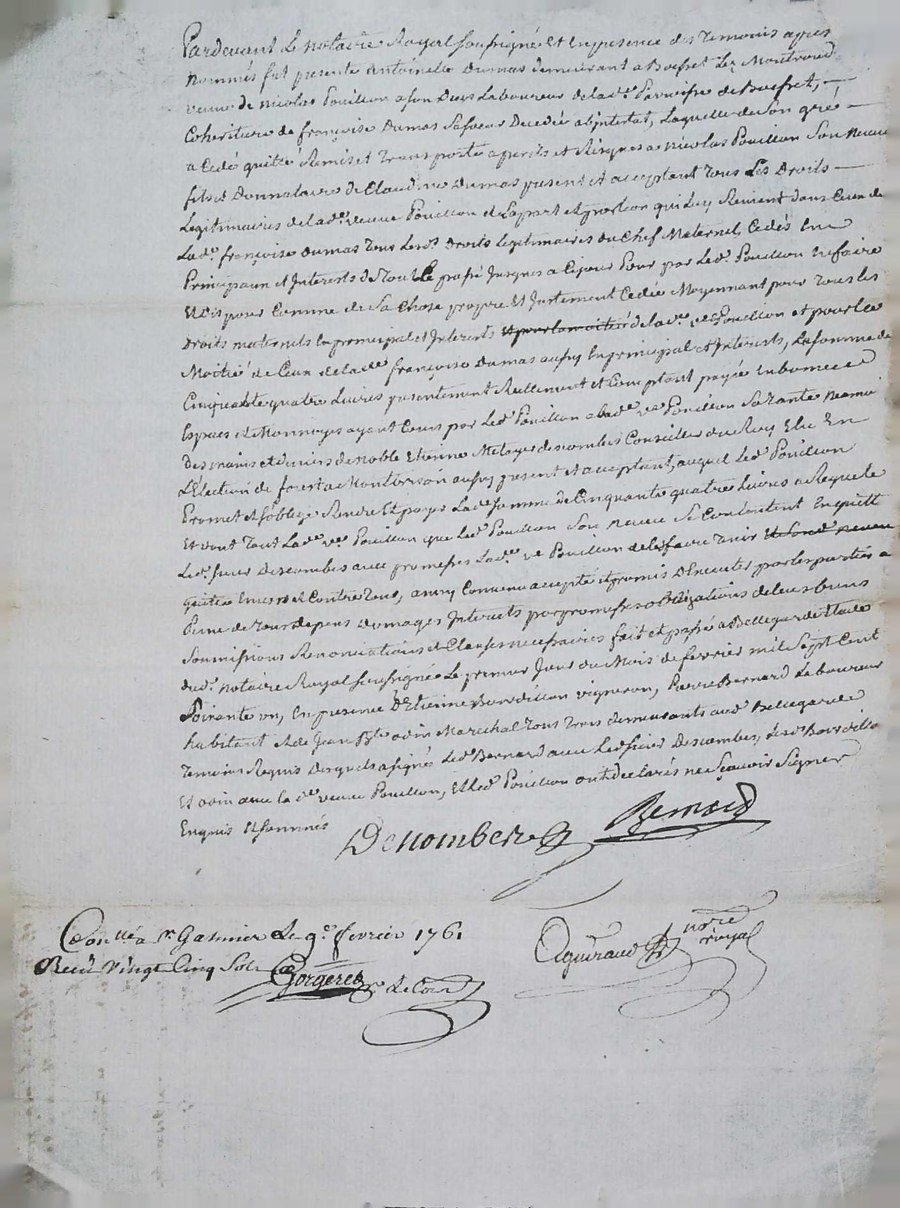 Pardevant Le Notaire Royal soussigné Et en presence des Temoins apres
nommés fut presente Antoinette Dumas demeurant a Boisset Lez Montrond
veuve de Nicolas Pouillon a son Deces Laboureur de lad.e Parroisse de Boisset,
Coheritiere de françoise Dumas sa soeur Decedée abintestat, Laquelle de son gré
a Cedé quitté Remis et transporté a perils et Risques a Nicolas Pouillon son neveu
fils et Donnataire de Claudine Dumas present et acceptant tous Les Droits
Legitimaires de lad.e veuve Pouillon et La part et portion qui Luy Revient dans Ceux de
Lad.e françoise Dumas tous Lesd. Droits Legitimaires du Chef Maternel, Cedés En
Principaux et Interets de tout Le passé Jusques a Ce jour Pour par Led. Pouillon En faire
Et Dis poser Comme de Sa Chose propre Et Justement Cedée Moyennant pour tous les
Droits maternels En principal et Interets de lad.e v.e Pouillon et pour la
Moitié de Ceux de lad.e françoise Dumas aussy En principal et Interets, La somme de
Cinquante quatre Livres presentement Reellement et Comptant payée En bonnes
Especes et Monnoyes ayant Cours par Led. Pouillon a lad.e v.e Pouillon Sa tante
des mains et deniers de Noble Etienne Des Combes Conseiller du Roy, Elu En
L'Election de forest a Montbrison aussy present et acceptant, auquel Led. Pouillon
Promet et s'oblige Rendre Et payer Lad.e somme de Cinquante quatre Livres a Requete
Et dont tout Lad.e v.e Pouillon que Led. Pouillon Son neveu Se Contentent En quitt
Led. sieur Descombes avec promesses Lad.e v.e Pouillon de les faire tenir Et Sond. neveu
quitte Envers et Contre tous, ainsy Convenu accepté et promis D'Executer par les parties a
Peine de tous depens Domages Interets par promesses obligations de leurs biens
Soumissions Renonciations et Clauses necessaires fait et passé a Bellegarde Etude
dud. Notaire Royal soussigné Le premier Jour du Mois de fevrier mil Sept Cent
Soixante un, En presence D'Etienne Bourdillon vigneron, Pierre Bernard Laboureur
habitant et de Jean B.te odin Marechal tous trois demeurants aud. Bellegarde
Temoins Requis Desquels a signé Led. Bernard avec Led. sieur Descombes, Lesd. Bourdillon
Et odin avec la d.e veuve Pouillon, Et Led. Pouillon ont declarés ne Sçavoir Signer
Enquis Et sommés
Bernard
Con.llé a S.t Galmier Le 9.e fevrier 1761
Reçu Vingt Cinq Sols
Gorgeret
notre
royal